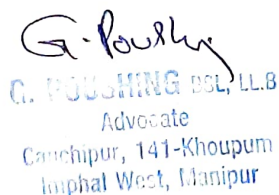 G. Poushing
G. POUSHING BSL, LL.B
Advocate
Canchipur, 141-Khoupum
Imphal West, Manipur